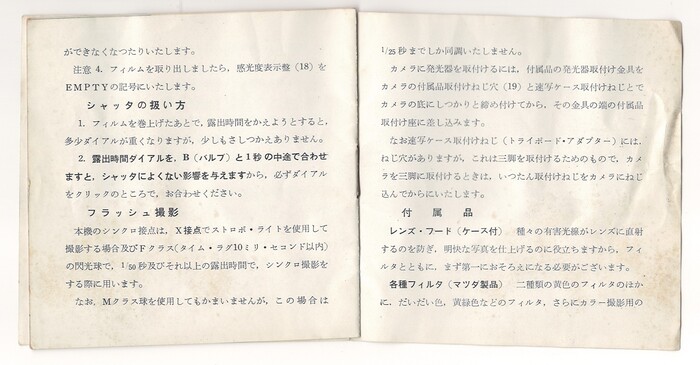 ができなくなつたりいたします。
注意 4. フィルムを取り出しましたら，感光度表示盤（18）を
EMPTYの記号にいたします。
シャッタの扱い方
1. フィルムを巻上げたあとで，露出時間をかえようとすると，
多少ダイアルが重くなりますが，少しもさしつかえありません。
2. 露出時間ダイアルを，B（バルブ）と1秒の中途で合わせ
ますと，シャッタによくない影響を与えますから，必ずダイアル
をクリックのところで，お合わせください。
フラッシュ撮影
本機のシンクロ接点は，X接点でストロボ・ライトを使用して
撮影する場合及びFクラス(タイム・ラグ10ミリ・セコンド以内)
の閃光球で，1/50秒及びそれ以上の露出時間で，シンクロ撮影を
する際に用います。
なお，Mクラス球を使用してもかまいませんが，この場合は
1/25秒までしか同調いたしません。
カメラに発光器を取付けるには，付属品の発光器取付け金具を
カメラの付属品取付けねじ穴（19）と速写ケース取付けねじとで
カメラの底にしつかりと締め付けてから，その金具の端の付属品
取付け座に差し込みます。
なお速写ケース取付けねじ（トライポード・アダプター）には，
ねじ穴がありますが，これは三脚を取付けるためのもので，カメ
ラを三脚に取付けるときは，いつたん取付けねじをカメラにねじ
込んでからにいたします。
付属品
レンズ・フード（ケース付） 種々の有害光線がレンズに直射
するのを防ぎ，明快な写真を仕上げるのに役立ちますから，フィ
ルタとともに，まず第一におそろえになる必要がございます。
各種フィルタ（マツダ製品） 二種類の黄色のフィルタのほか
に，だいだい色，黄緑色などのフィルタ，さらにカラー撮影用の